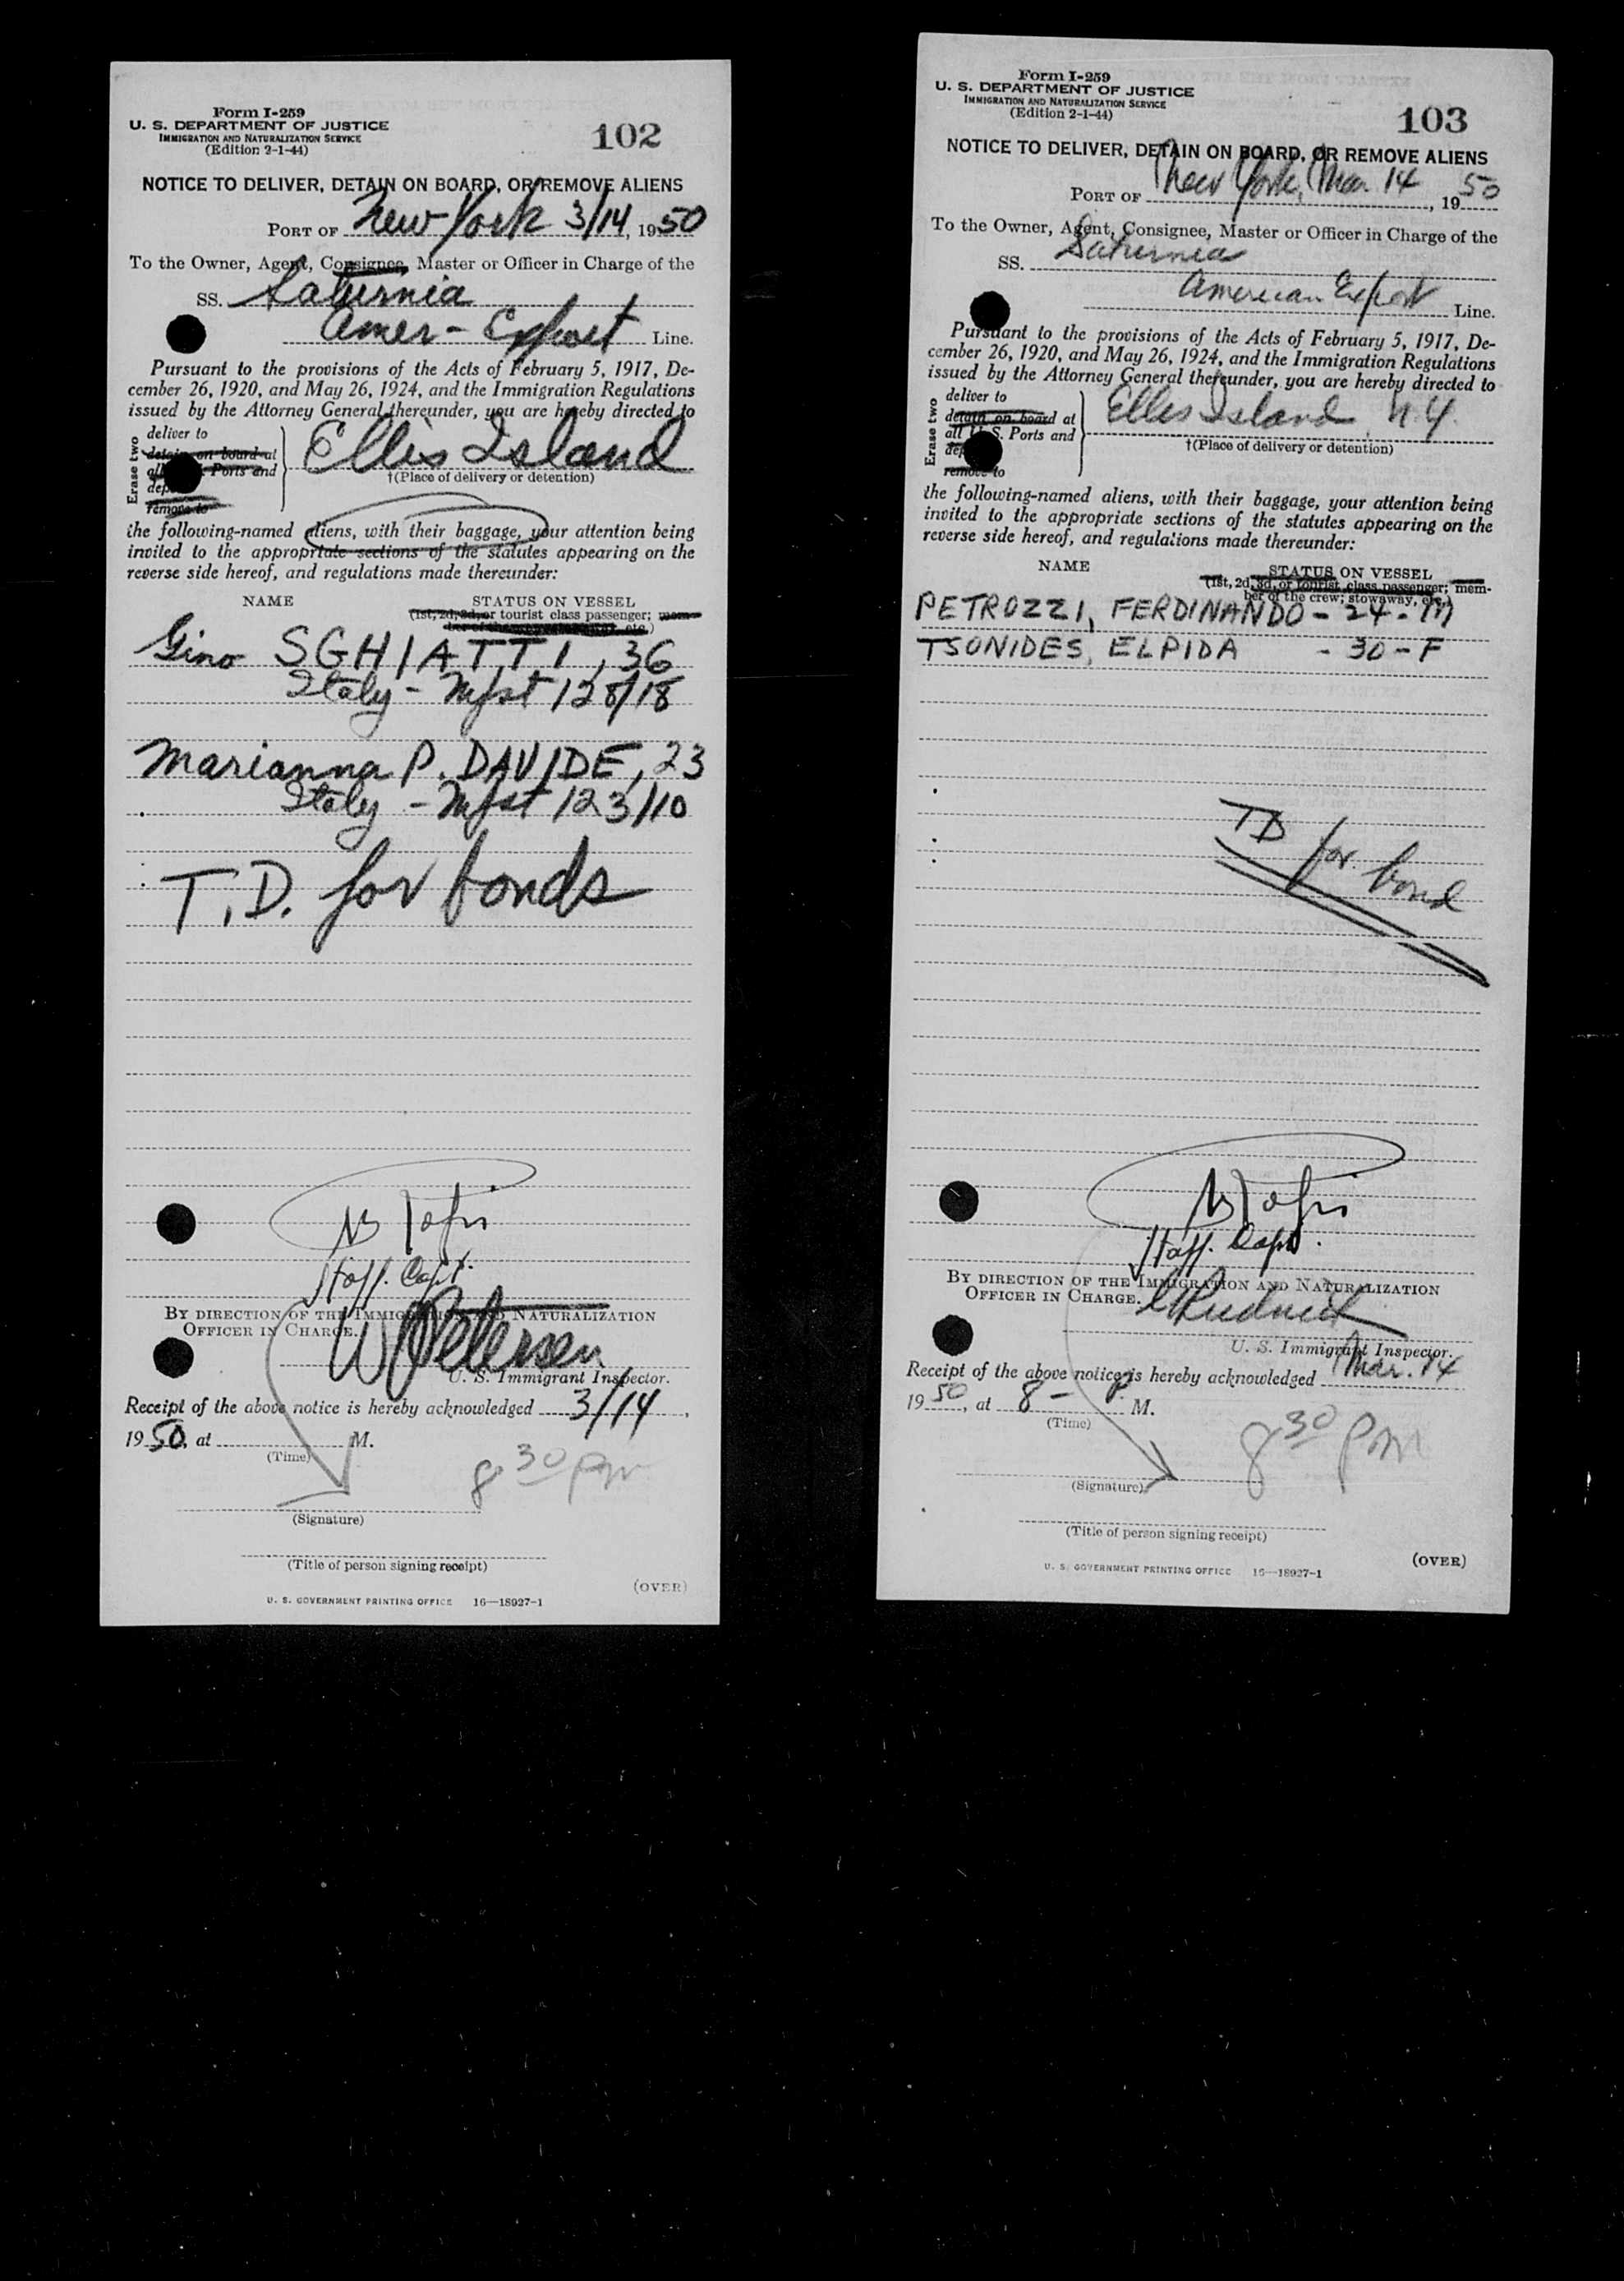 Form I-259
U. S. DEPARTMENT OF JUSTICE
IMMIGRATION AND NATURALIZATION SERVICE
(Edition 2-1-44)
102
NOTICE TO DELIVER, DETAIN ON BOARD, OR REMOVE ALIENS
PORT OF New York 3/14, 1950
To the Owner, Agent, Consignee, Master or Officer in Charge of the
SS. Saturnia
Amer- Export Line.
Pursuant to the provisions of the Acts of February 5, 1917, De-
cember 26, 1920, and May 26, 1924, and the Immigration Regulations
issued by the Attorney General thereunder, you are hereby directed to
Erase two
deliver to
detain on board at
all Ports and
remove to
Ellis Island
†(Place of delivery or detention)
the following-named aliens, with their baggage, your attention being
invited to the appropriate sections of the statutes appearing on the
reverse side hereof, and regulations made thereunder:
NAME STATUS ON VESSEL
(1st, 2d, 3d, or tourist class passenger; mem-
ber of the crew, stowaway, etc.)
Gino SGHIATTI, 36
Italy - Mfst 128/18
Marianna P. DAVIDE, 23
Italy - Mfst 123/10
T.D. for bonds
Staff. Capt.
BY DIRECTION OF THE IMMIGRATION AND NATURALIZATION
OFFICER IN CHARGE.
Petersen
U. S. Immigrant Inspector.
Receipt of the above notice is hereby acknowledged 3/14,
1950, at M.
(Time)
8 30 pm
(Signature)
(Title of person signing receipt)
(OVER)
U. S. GOVERNMENT PRINTING OFFICE 16—18927-1
Form I-259
U. S. DEPARTMENT OF JUSTICE
IMMIGRATION AND NATURALIZATION SERVICE
(Edition 2-1-44)
103
NOTICE TO DELIVER, DETAIN ON BOARD, OR REMOVE ALIENS
PORT OF New York, Mar. 14, 1950
To the Owner, Agent, Consignee, Master or Officer in Charge of the
SS. Saturnia
American Export Line.
Pursuant to the provisions of the Acts of February 5, 1917, De-
cember 26, 1920, and May 26, 1924, and the Immigration Regulations
issued by the Attorney General thereunder, you are hereby directed to
Erase two
deliver to
detain on board at
all U. S. Ports and
remove to
Ellis Island, N.Y.
†(Place of delivery or detention)
the following-named aliens, with their baggage, your attention being
invited to the appropriate sections of the statutes appearing on the
reverse side hereof, and regulations made thereunder:
NAME STATUS ON VESSEL
(1st, 2d, 3d, or tourist class passenger; mem-
ber of the crew; stowaway, etc.)
PETROZZI, FERDINANDO - 24 - M
TSONIDES, ELPIDA - 30 - F
TD for bond
Staff. Capt.
BY DIRECTION OF THE IMMIGRATION AND NATURALIZATION
OFFICER IN CHARGE.
Rudnick
U. S. Immigrant Inspector.
Receipt of the above notice is hereby acknowledged Mar. 14
1950, at 8 - P. M.
(Time)
8 30 pm
(Signature)
(Title of person signing receipt)
(OVER)
U. S. GOVERNMENT PRINTING OFFICE 16—18927-1